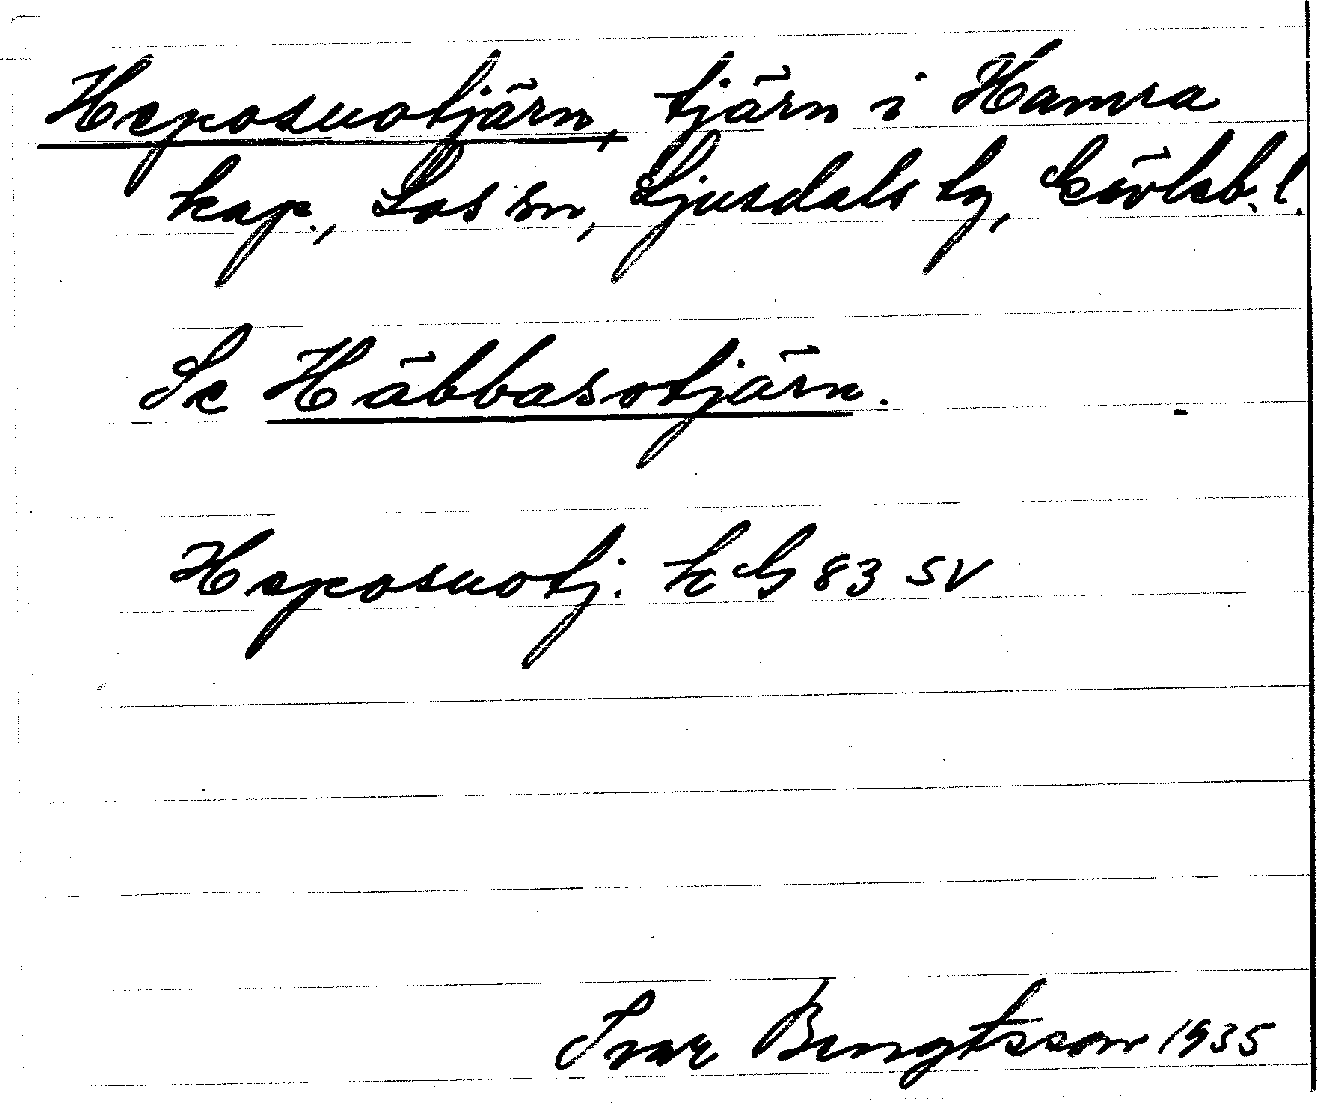 Heposuotjärn, tjärn i Hamra
kap., Los sn, Ljusdals tg, Gävleb. l.
Se Häbbasotjärn.
Heposuotj. GG 83 SV
Ivar Bengtsson 1935